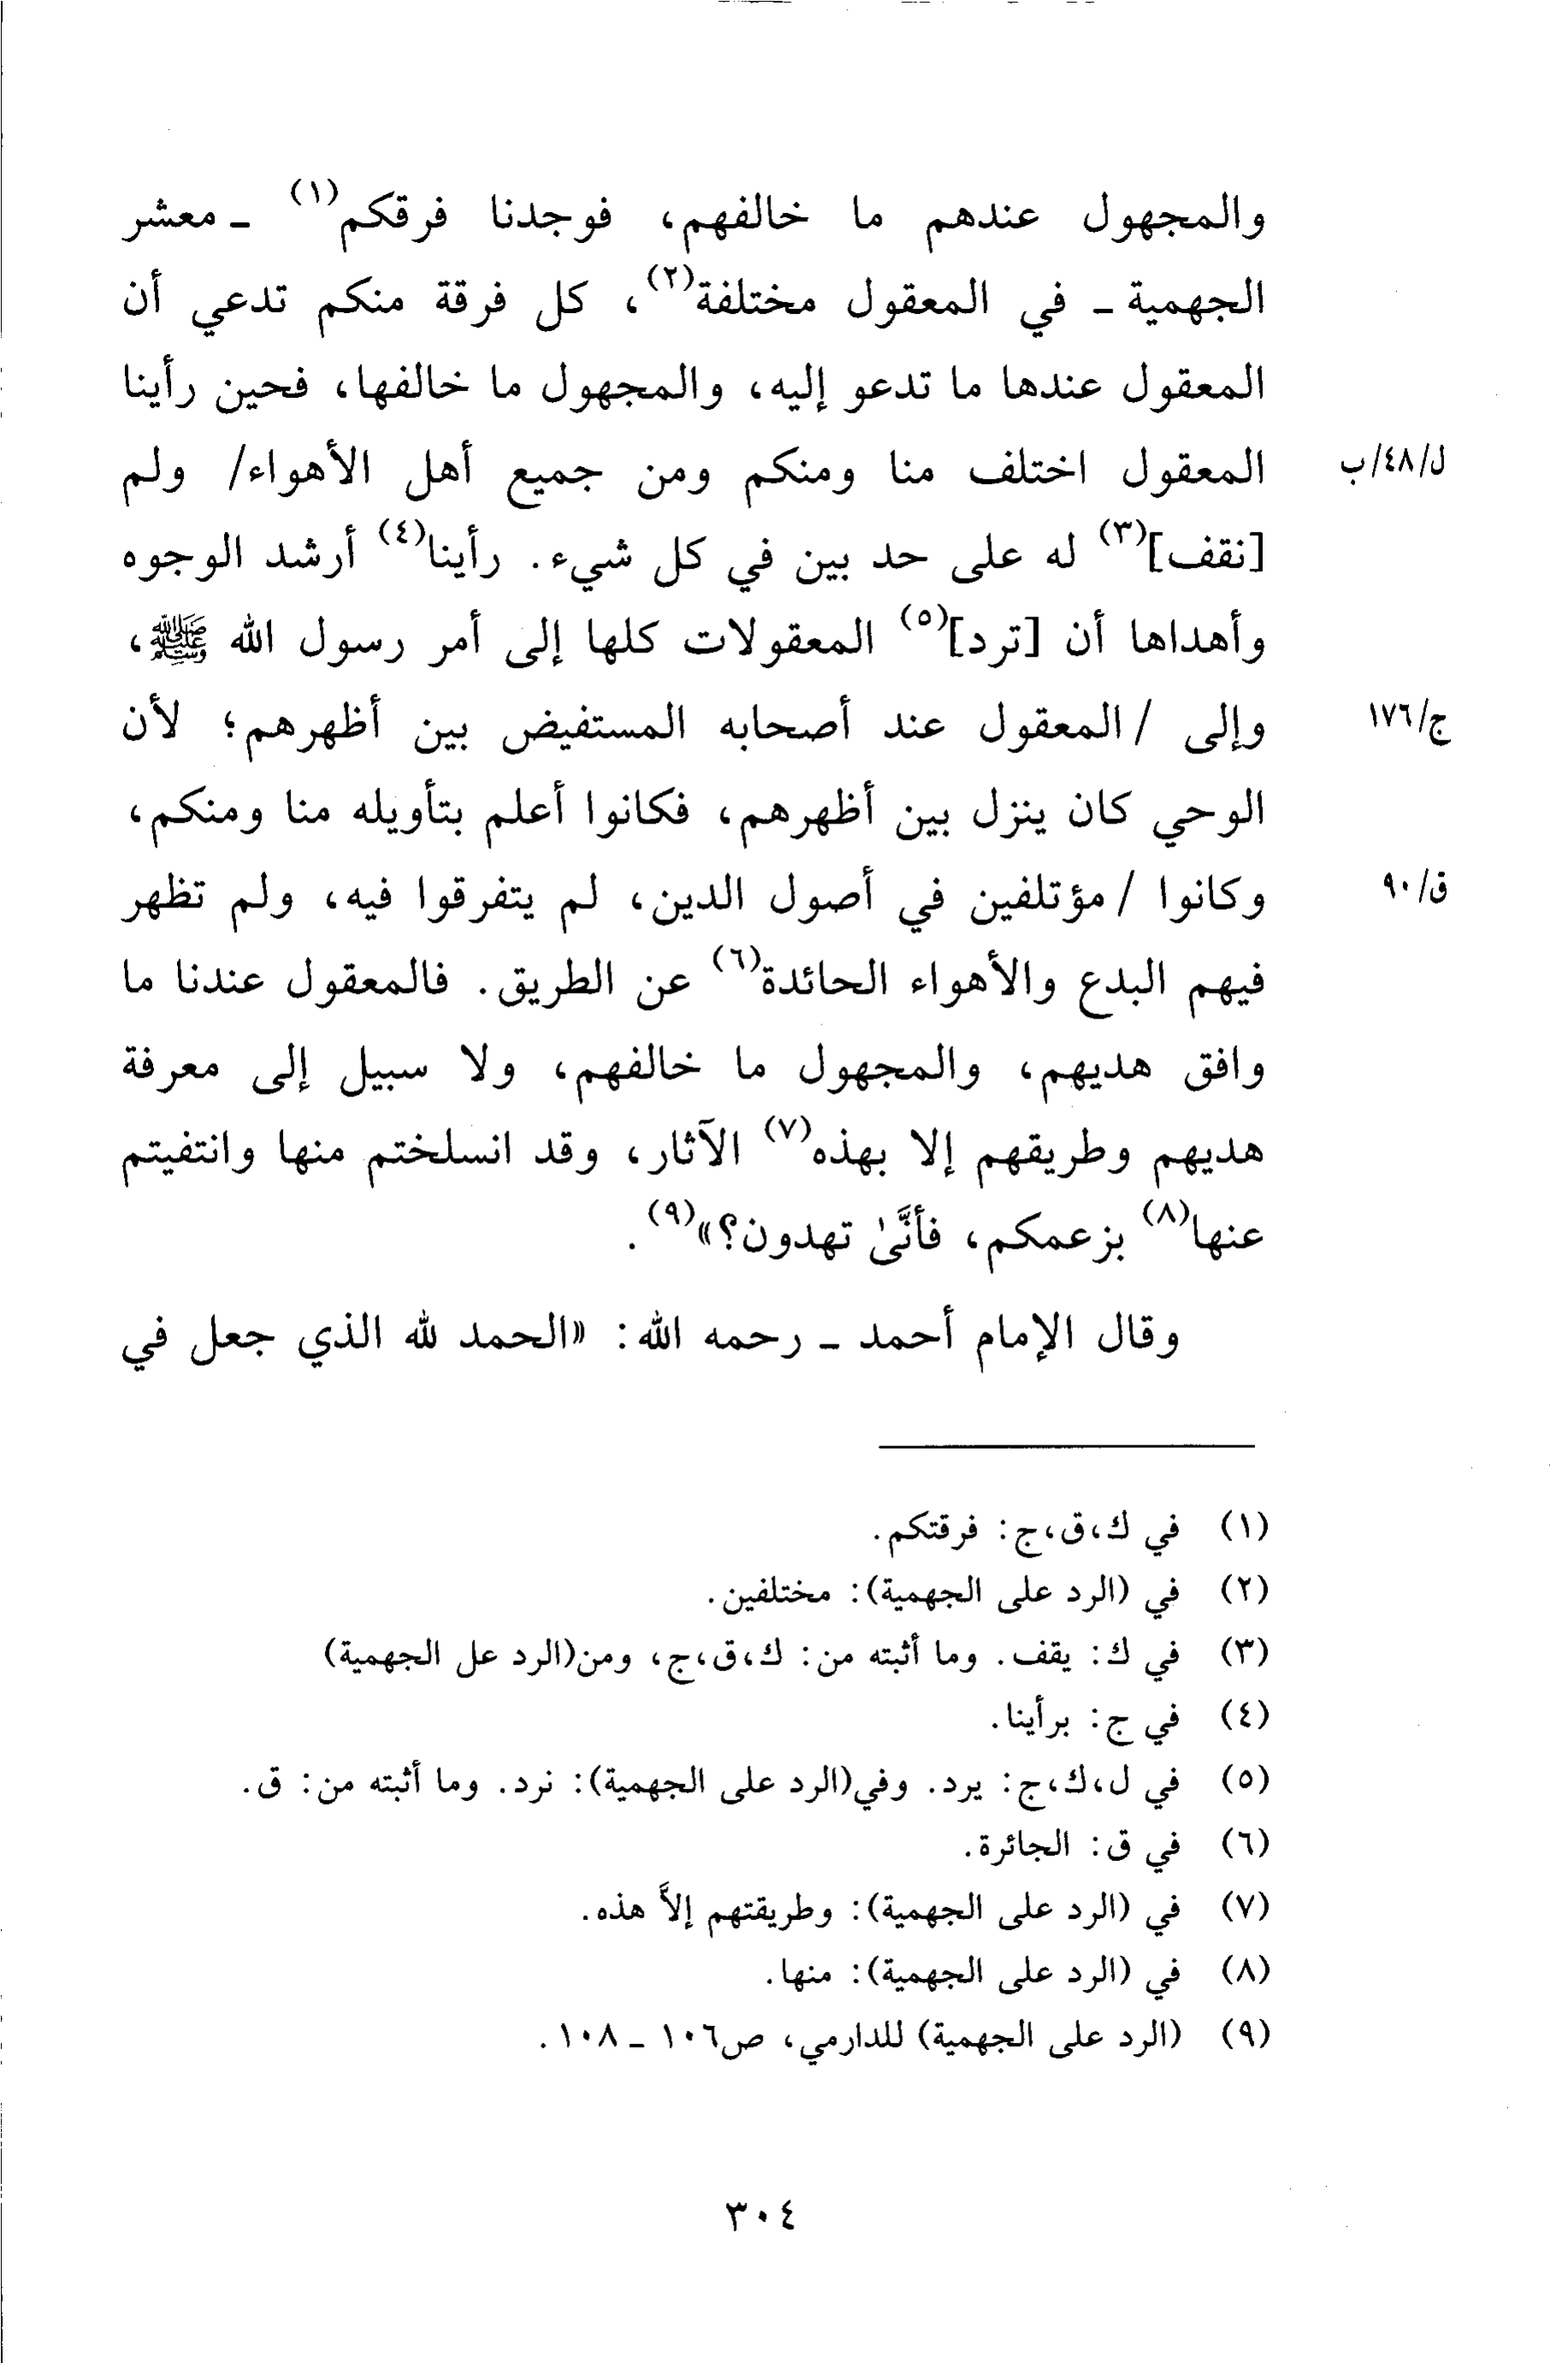 والمجهول عندهم ما خالفهم، فوجدنا فرقكم(١) ـ معشر
الجهمية ـ في المعقول مختلفة(٢)، كل فرقة منكم تدعي أن
المعقول عندها ما تدعو إليه، والمجهول ما خالفها، فحين رأينا
المعقول اختلف منا ومنكم ومن جميع أهل الأهواء/ ولم
ل/٤٨/ب
[نقف](٣) له على حد بين في كل شيء. رأينا(٤) أرشد الوجوه
وأهداها أن [ترد](٥) المعقولات كلها إلى أمر رسول الله ﷺ،
وإلى / المعقول عند أصحابه المستفيض بين أظهرهم؛ لأن
ج/١٧٦
الوحي كان ينزل بين أظهرهم، فكانوا أعلم بتأويله منا ومنكم،
وكانوا / مؤتلفين في أصول الدين، لم يتفرقوا فيه، ولم تظهر
ق/٩٠
فيهم البدع والأهواء الحائدة(٦) عن الطريق. فالمعقول عندنا ما
وافق هديهم، والمجهول ما خالفهم، ولا سبيل إلى معرفة
هديهم وطريقهم إلا بهذه(٧) الآثار، وقد انسلختم منها وانتفيتم
عنها(٨) بزعمكم، فأنَّىٰ تهدون؟»(٩).
وقال الإمام أحمد ـ رحمه الله: «الحمد لله الذي جعل في
(١) في ك،ق،ج: فرقتكم.
(٢) في (الرد على الجهمية): مختلفين.
(٣) في ك: يقف. وما أثبته من: ك،ق،ج، ومن(الرد عل الجهمية)
(٤) في ج: برأينا.
(٥) في ل،ك،ج: يرد. وفي(الرد على الجهمية): نرد. وما أثبته من: ق.
(٦) في ق: الجائرة.
(٧) في (الرد على الجهمية): وطريقتهم إلاَّ هذه.
(٨) في (الرد على الجهمية): منها.
(٩) (الرد على الجهمية) للدارمي، ص١٠٦ ـ ١٠٨.
٣٠٤